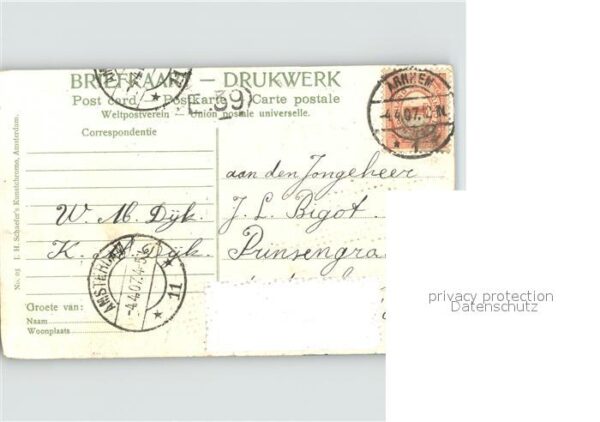 BRIEFKAART — DRUKWERK
Post card — Postkarte — Carte postale
Weltpostverein — Union postale universelle.
Correspondentie
39
ARNHEM
4.4.07.
1
aan den Jongeheer
J. L. Bigot
Prinsengra
W. M. Dijk.
K. Dijk.
AMSTERDAM
4.4.07.4-5
11
Groete van:
Naam
Woonplaats
No. 05 J. H. Schaefer's Kunstchromo, Amsterdam.
privacy protection
Datenschutz